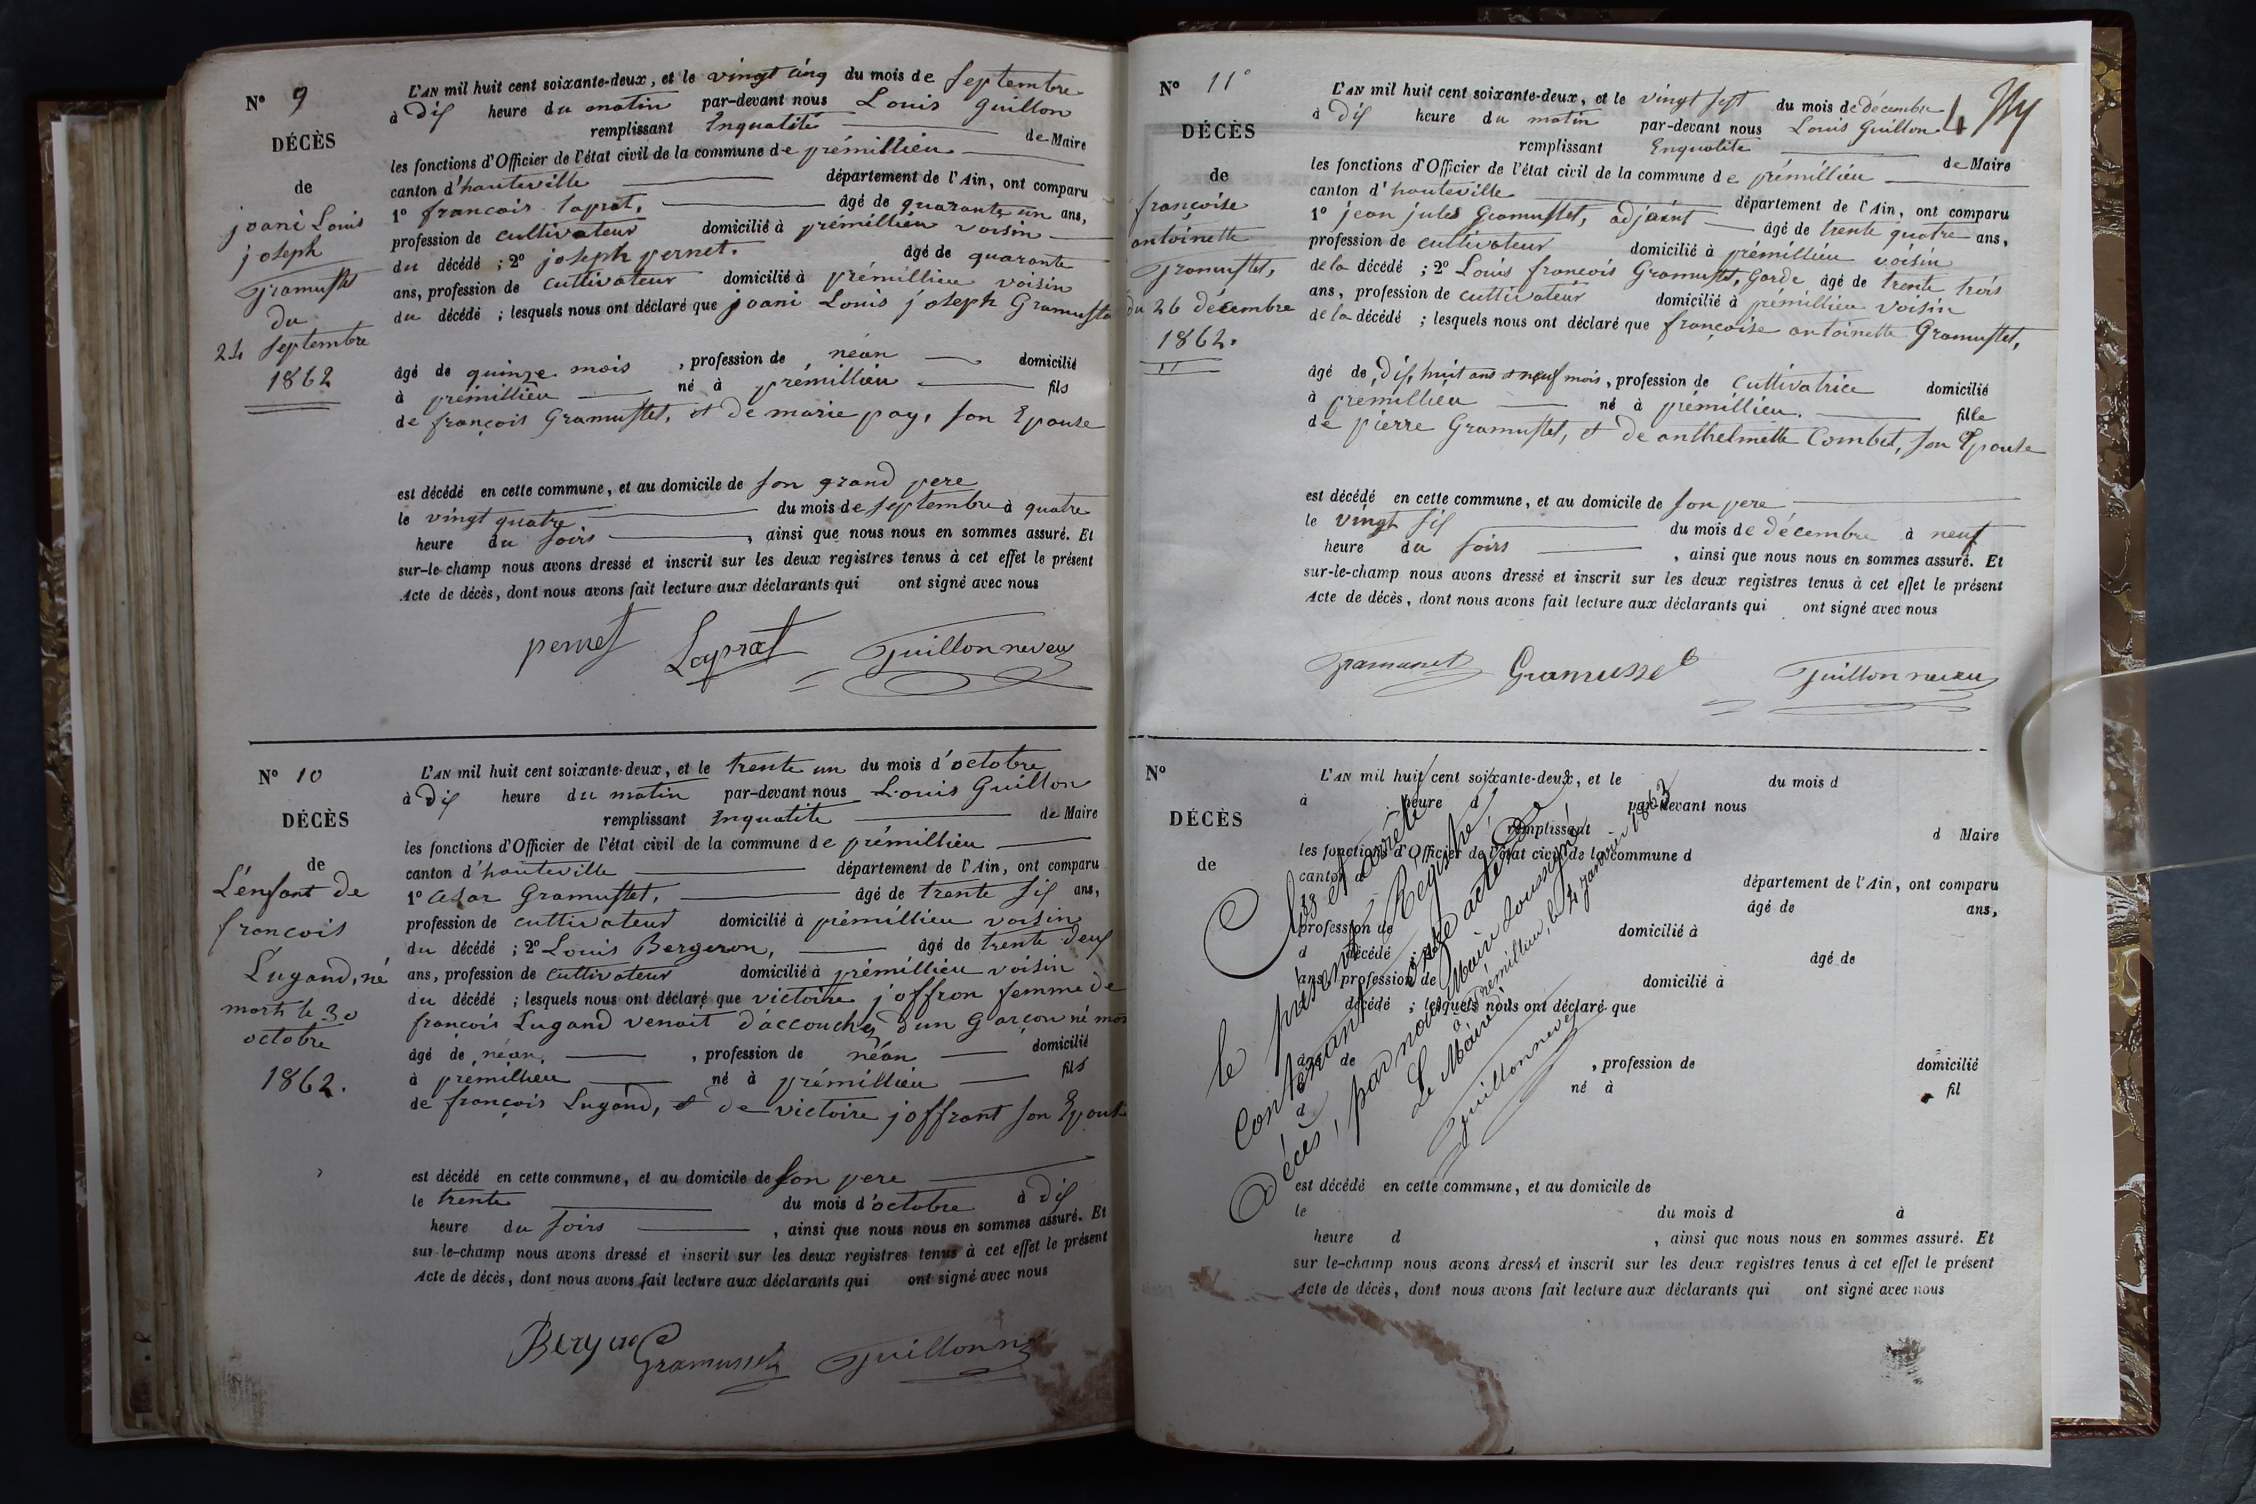 N° 9
DÉCÈS
de
joani Louis
joseph
Gramusset
du
24 septembre
1862
L'AN mil huit cent soixante-deux, et le vingt cinq du mois de septembre
à dix heure du matin par-devant nous Louis Guillon
remplissant Enqualité de Maire
les fonctions d'Officier de l'état civil de la commune de prémillieu
canton d'hauteville département de l'Ain, ont comparu
1° francois laprat, âgé de quarante un ans,
profession de cultivateur domicilié à prémillieu voisin
du décédé ; 2° joseph pernet. âgé de quarante
ans, profession de cultivateur domicilié à prémillieu voisin
du décédé ; lesquels nous ont déclaré que joani Louis joseph Gramusset
âgé de quinze mois , profession de néan domicilié
à prémillieu né à prémillieu fils
de françois Gramusset, et de marie pay, son Epouse
est décédé en cette commune, et au domicile de son grand pere
le vingt quatre du mois de septembre à quatre
heure du soirs , ainsi que nous nous en sommes assuré. Et
sur-le-champ nous avons dressé et inscrit sur les deux registres tenus à cet effet le présent
Acte de décès, dont nous avons fait lecture aux déclarants qui ont signé avec nous
pernet Laprat Guillon neveu
N° 10
DÉCÈS
de
L'enfant de
francois
Lugand, né
mort le 30
octobre
1862.
L'AN mil huit cent soixante-deux, et le trente un du mois d'octobre
à dix heure du matin par-devant nous Louis Guillon
remplissant Enqualité de Maire
les fonctions d'Officier de l'état civil de la commune de prémillieu
canton d'hauteville département de l'Ain, ont comparu
1° Cesar Gramusset, âgé de trente six ans,
profession de cultivateur domicilié à prémillieu voisin
du décédé ; 2° Louis Bergeron, âgé de trente deux
ans, profession de cultivateur domicilié à prémillieu voisin
du décédé ; lesquels nous ont déclaré que victoire joffron femme de
françois Lugand venait d'accoucher d'un Garçon né mort
âgé de néan. , profession de néan domicilié
à prémillieu né à prémillieu fils
de françois Lugand, et de victoire joffrant son Epouse
est décédé en cette commune, et au domicile de son pere
le trente du mois d'octobre à dix
heure du soirs , ainsi que nous nous en sommes assuré. Et
sur-le-champ nous avons dressé et inscrit sur les deux registres tenus à cet effet le présent
Acte de décès, dont nous avons fait lecture aux déclarants qui ont signé avec nous
Gramusset Guillon n
N° 11°
DÉCÈS
de
françoise
antoinette
Gramusset,
du 26 décembre
1862.
L'AN mil huit cent soixante-deux, et le vingt sept du mois de décembre
à dix heure du matin par-devant nous Louis Guillon
remplissant Enqualité de Maire
les fonctions d'Officier de l'état civil de la commune de prémillieu
canton d'hauteville département de l'Ain, ont comparu
1° jean jules Gramusset, adjoint âgé de trente quatre ans,
profession de cultivateur domicilié à prémillieu voisin
de la décédé ; 2° Louis francois Gramusset, Garde âgé de trente trois
ans, profession de cultivateur domicilié à prémillieu voisin
de la décédé ; lesquels nous ont déclaré que françoise antoinette Gramusset,
âgé de dix huit ans et neuf mois, profession de cultivatrice domicilié
à prémillieu né à prémillieu. fille
de pierre Gramusset, et de anthelmette Combet, son Epouse
est décédé en cette commune, et au domicile de son pere
le vingt six du mois de décembre à neuf
heure du soirs , ainsi que nous nous en sommes assuré. Et
sur-le-champ nous avons dressé et inscrit sur les deux registres tenus à cet effet le présent
Acte de décès, dont nous avons fait lecture aux déclarants qui ont signé avec nous
Gramusset Gramusset Guillon neveu
N°
DÉCÈS
de
L'AN mil huit cent soixante-deux, et le du mois d
à heure d par-devant nous
remplissant d Maire
les fonctions d'Officier de l'état civil de la commune d
canton d département de l'Ain, ont comparu
1° âgé de ans,
profession de domicilié à
d décédé ; 2° âgé de
ans, profession de domicilié à
d décédé ; lesquels nous ont déclaré que
âgé de , profession de domicilié
à né à fil
d
est décédé en cette commune, et au domicile de
le du mois d à
heure d , ainsi que nous nous en sommes assuré. Et
sur le-champ nous avons dressé et inscrit sur les deux registres tenus à cet effet le présent
Acte de décès, dont nous avons fait lecture aux déclarants qui ont signé avec nous
Clos et arrêté
le présent Régistre,
contenant onze actes de
Décès, par nous Maire soussigné
à prémillieu, le 4 janvier 1863
Le Maire
Guillon neveu